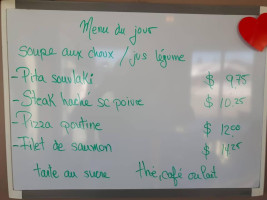 Menu du jour
soupe aux choux / jus légume
- Pita souvlaki $ 9.75
- Steak haché sc poivre $ 10.25
- Pizza poutine $ 12.00
- Filet de saumon $ 14.25
tarte au sucre thé, café ou lait